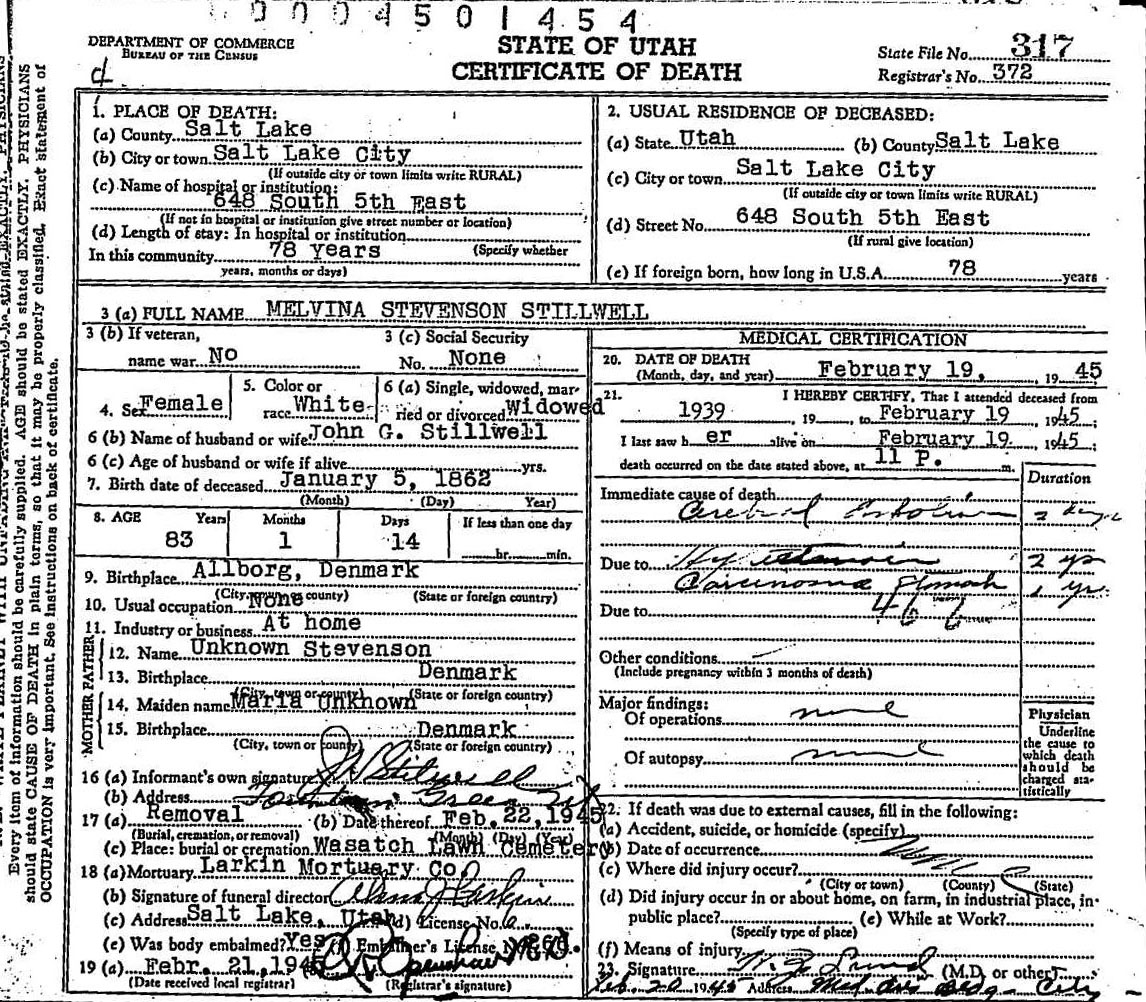 0004501454
DEPARTMENT OF COMMERCE
BUREAU OF THE CENSUS
STATE OF UTAH
CERTIFICATE OF DEATH
State File No. 317
Registrar's No. 372
d
Every item of information should be carefully supplied. AGE should be stated EXACTLY. PHYSICIANS
should state CAUSE OF DEATH in plain terms, so that it may be properly classified. Exact statement of
OCCUPATION is very important. See instructions on back of certificate.
1. PLACE OF DEATH:
(a) County Salt Lake
(b) City or town Salt Lake City
(If outside city or town limits write RURAL)
(c) Name of hospital or institution:
648 South 5th East
(If not in hospital or institution give street number or location)
(d) Length of stay: In hospital or institution
In this community 78 years (Specify whether
years, months or days)
2. USUAL RESIDENCE OF DECEASED:
(a) State Utah (b) County Salt Lake
(c) City or town Salt Lake City
(If outside city or town limits write RURAL)
(d) Street No. 648 South 5th East
(If rural give location)
(e) If foreign born, how long in U.S.A. 78 years
3 (a) FULL NAME MELVINA STEVENSON STILLWELL
3 (b) If veteran, 3 (c) Social Security
name war No No. None
4. Sex Female 5. Color or race White 6 (a) Single, widowed, married or divorced Widowed
6 (b) Name of husband or wife John G. Stillwell
6 (c) Age of husband or wife if alive yrs.
7. Birth date of deceased January 5, 1862
(Month) (Day) Year)
8. AGE Years Months Days If less than one day
83 1 14 hr. min.
9. Birthplace Allborg, Denmark
(City, town or county) (State or foreign country)
10. Usual occupation None
11. Industry or business At home
FATHER
12. Name Unknown Stevenson
13. Birthplace Denmark
(City, town or county) (State or foreign country)
MOTHER
14. Maiden name Maria Unknown
15. Birthplace Denmark
(City, town or county) (State or foreign country)
16 (a) Informant's own signature J W Stilwell
(b) Address Fountain Green Ut
17 (a) Removal (b) Date thereof Feb. 22, 1945
(Burial, cremation, or removal) (Month) (Day) (Year)
(c) Place: burial or cremation Wasatch Lawn Cemetery
18 (a) Mortuary Larkin Mortuary Co.
(b) Signature of funeral director Larkin
(c) Address Salt Lake, Utah (d) License No.
(e) Was body embalmed? Yes (f) Embalmer's License No.
19 (a) Febr. 21, 1945
(Date received local registrar) (Registrar's signature)
MEDICAL CERTIFICATION
20. DATE OF DEATH
(Month, day, and year) February 19, 1945
21. I HEREBY CERTIFY, That I attended deceased from
1939 19 , to February 19 1945;
I last saw h er alive on February 19. 1945;
death occurred on the date stated above, at 11 P. m.
Duration
Immediate cause of death
Cerebral 2 days
Due to Hypertension 2 yrs
Carcinoma 1 yr.
Due to
Other conditions
(Include pregnancy within 3 months of death)
Major findings:
Of operations none
Of autopsy none
Physician
Underline
the cause to
which death
should be
charged sta-
tistically
22. If death was due to external causes, fill in the following:
(a) Accident, suicide, or homicide (specify)
(b) Date of occurrence
(c) Where did injury occur?
(City or town) (County) (State)
(d) Did injury occur in or about home, on farm, in industrial place, in-
public place? (e) While at Work?
(Specify type of place)
(f) Means of injury
23. Signature (M.D. or other)
Feb. 20 1945 Address Bldg. City